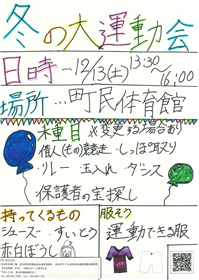 冬の大運動会
日時…12/13(土)13:30~16:00
場所…町民体育館
種目 ※変更する場合あり
借人(もの)競走・しっぽ取り
リレー・玉入れ・ダンス
保護者の宝探し
持ってくるもの
シューズ・すいとう
赤白ぼうし
服そう
運動できる服